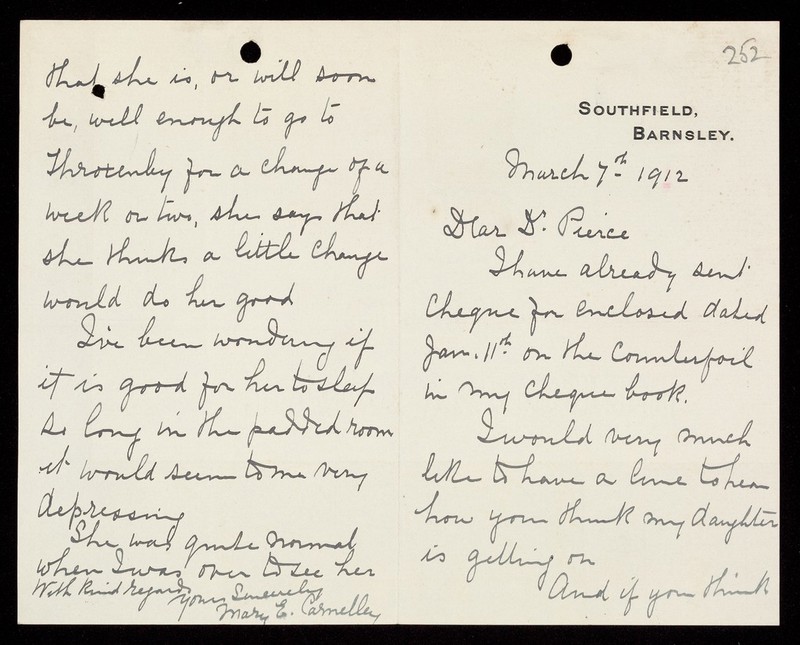 252
SOUTHFIELD,
BARNSLEY.
March 7th 1912
Dear Dr. Pierce
I have already sent
cheque for enclosed dated
Jan. 11th on the Counterfoil
in my cheque book.
I would very much
like to have a line to hear
how you think my daughter
is getting on
And if you think
that she is, or will soon
be, well enough to go to
Throxenby for a change of a
week or two, she says that
she thinks a little change
would do her good
I've been wondering if
it is good for her to sleep
so long in the padded room
it would seem to me very
depressing
She was quite normal
when I was over to see her
With kind regards
Yours Sincerely
Mary E. Carnelley